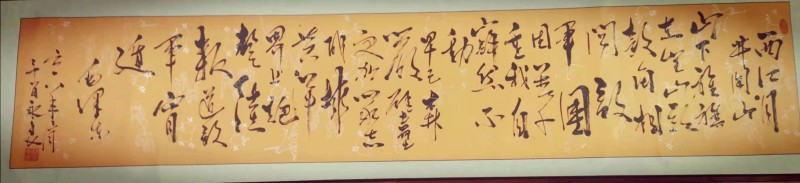 西江月
井冈山
山下旌旗
在望山头
鼓角相
闻敌
军围
困万千
重我自
岿然不
动
早已森
严壁垒
更加众志
成城
黄洋
界上炮
声隆
报道敌
军宵
遁
毛泽东